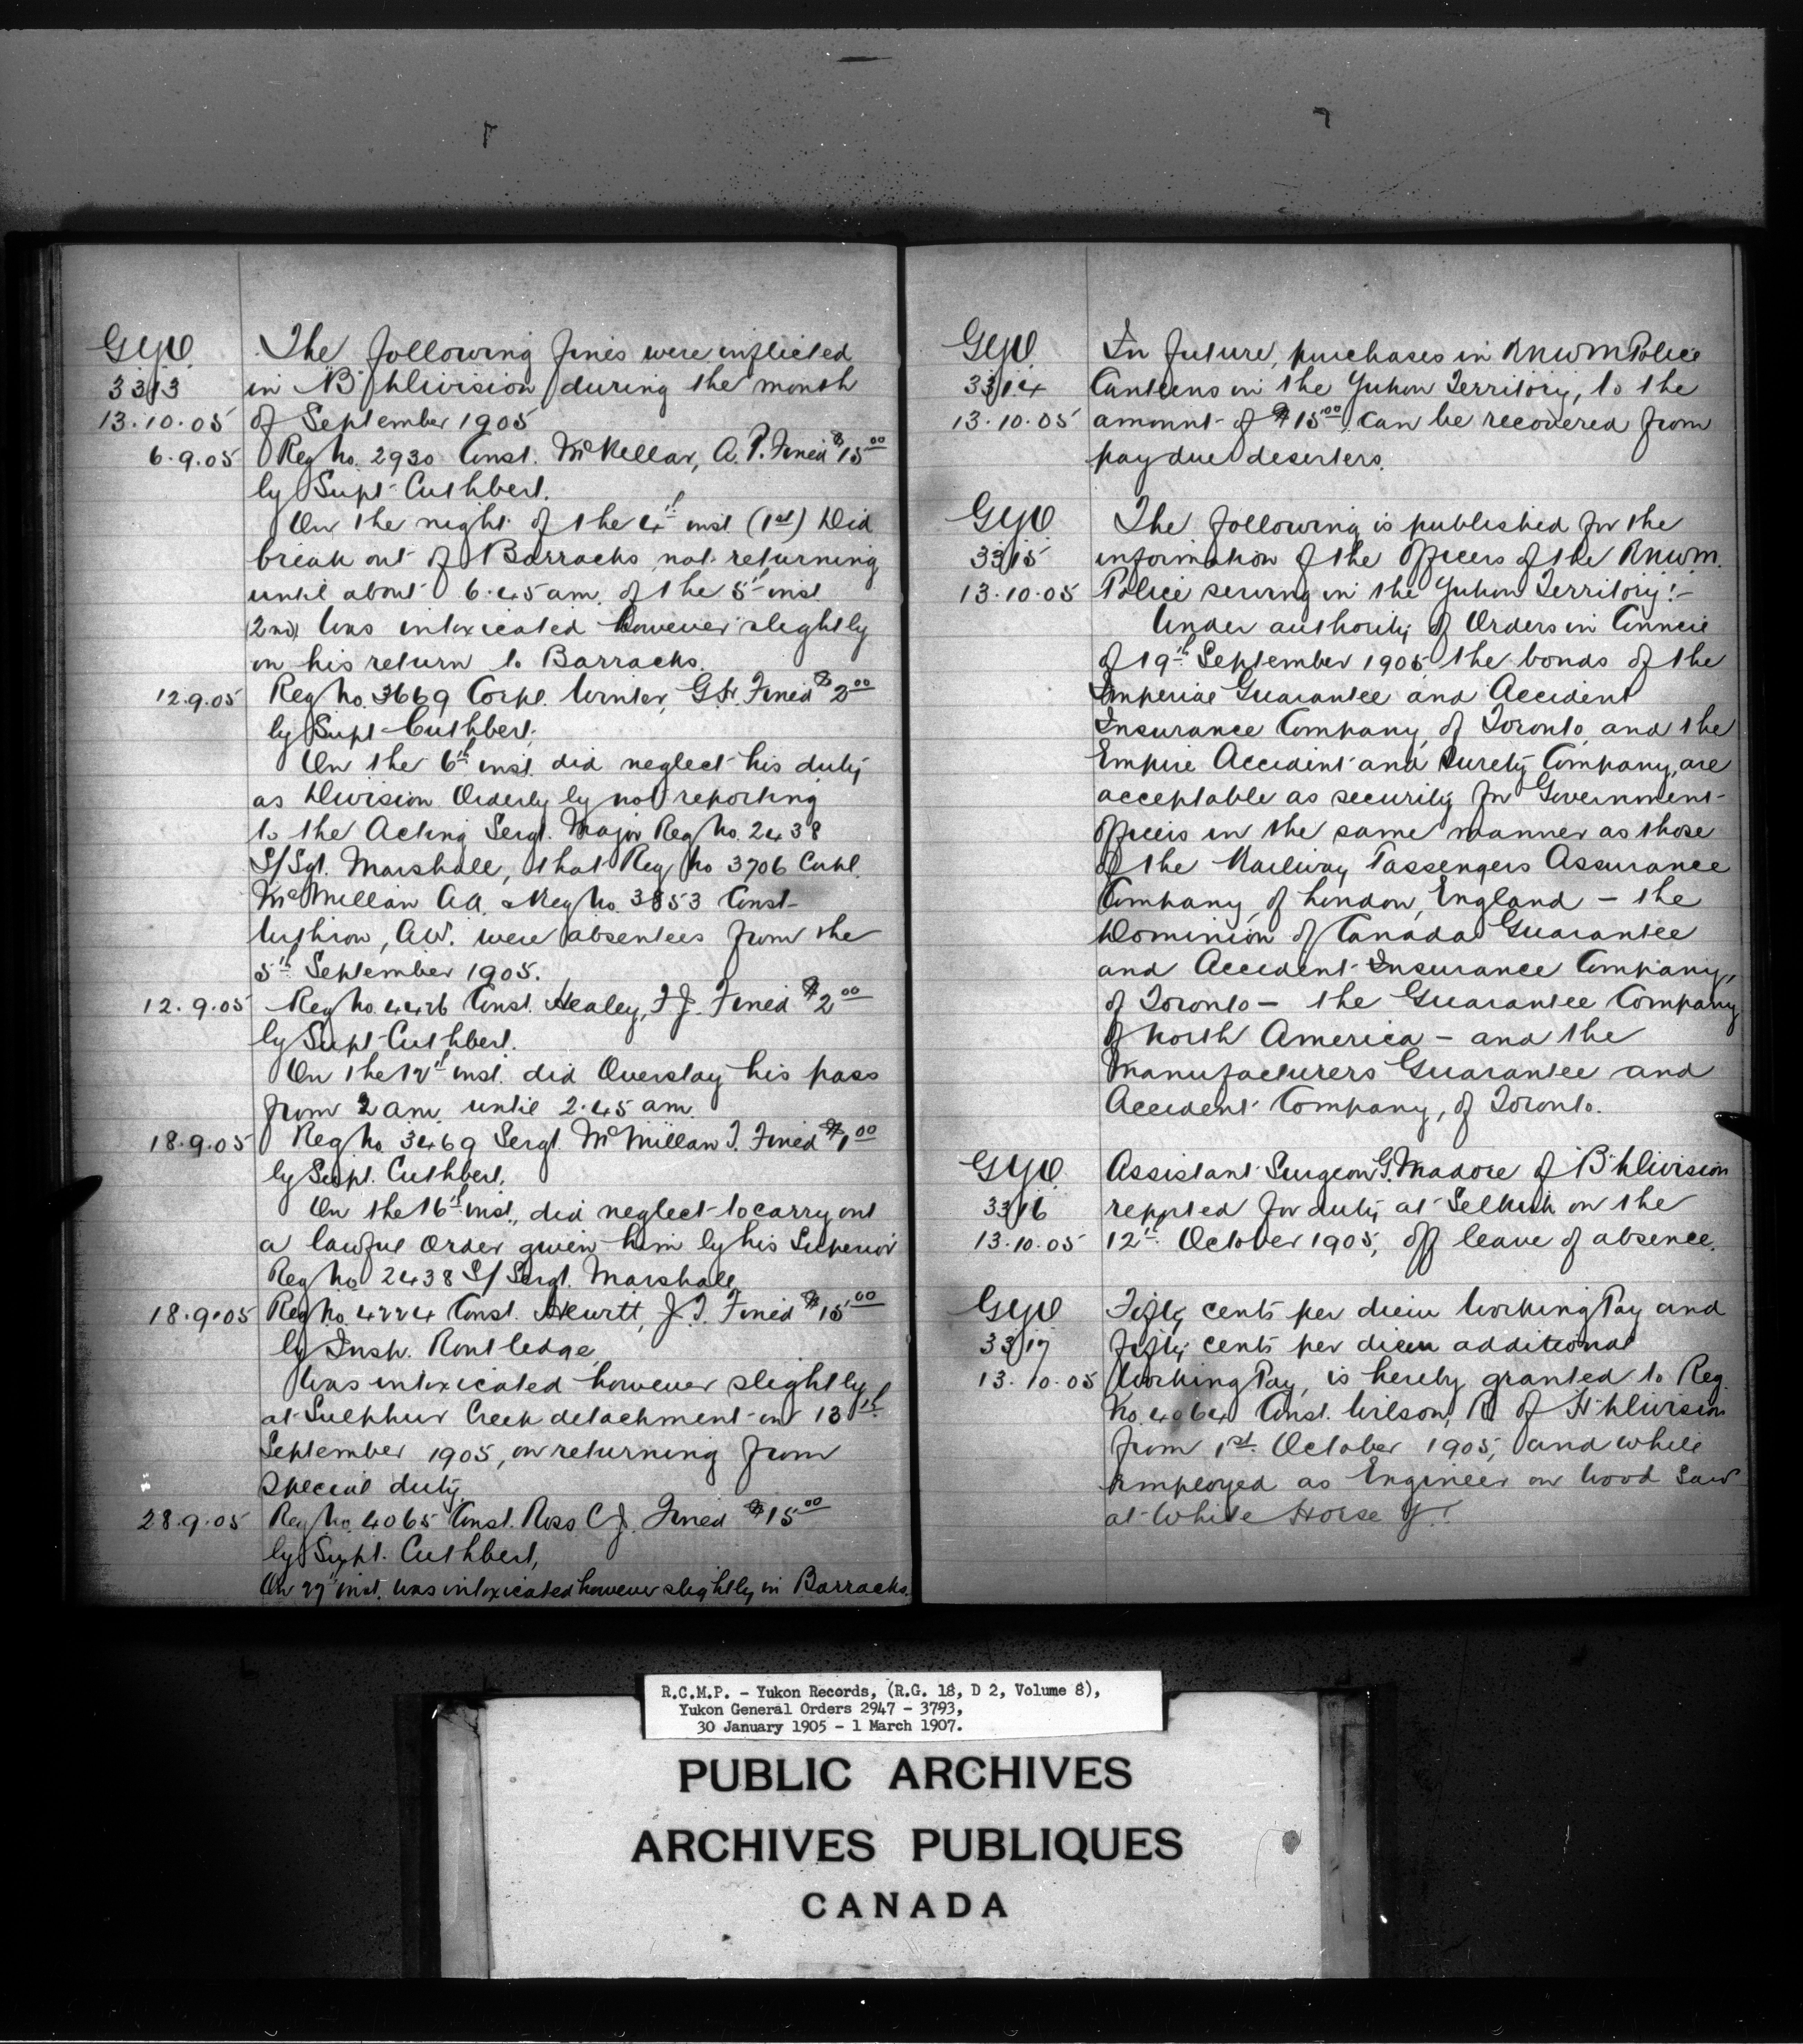 GYO
3313
13.10.05
The following fines were inflicted
in "B" Division during the month
of September 1905
6.9.05
Reg No. 2930 Const. McKellar, A.P. Fined $15.00
by Supt Cuthbert.
On the night of the 4th inst (1st) Did
break out of Barracks not returning
until about 6.45 am. of the 5th inst
(2nd) Was intoxicated however slightly
on his return to Barracks.
12.9.05
Reg No. 3669 Corpl. Winter, Fined $2.00
by Supt Cuthbert.
On the 6th inst. did neglect his duty
as Division Orderly by not reporting
to the Acting Sergt. Major Reg No. 2438
S/Sgt. Marshall, that Reg No 3706 Corpl.
McMillan A.A. & Reg No. 3853 Const
A.W. were absentees from the
5th September 1905.
12.9.05
Reg No. 4426 Const. Healey, F.J. Fined $2.00
by Supt Cuthbert.
On the 12th inst. did Overstay his pass
from 2 am until 2.45 am.
18.9.05
Reg No 3469 Sergt. McMillan T. Fined $1.00
by Supt. Cuthbert.
On the 16th inst., did neglect to carry out
a lawful Order given him by his Superior
Reg No 2438 S/Sergt. Marshall
18.9.05
Reg No. 4224 Const. Hewitt, J.T. Fined $15.00
by Insp. Routledge
Was intoxicated however slightly
at Sulphur Creek detachment on 13th
September 1905, on returning from
special duty.
28.9.05
Reg No. 4065 Const. Ross C.J. Fined $15.00
by Supt. Cuthbert,
On 27th inst. was intoxicated however slightly in Barracks.
GYO
3314
13.10.05
In future, purchases in RNWM Police
Canteens in the Yukon Territory, to the
amount of $15.00, can be recovered from
pay due deserters.
GYO
3315
13.10.05
The following is published for the
information of the Officers of the RNWM.
Police serving in the Yukon Territory:-
Under authority of Orders in Council
of 19th September 1905 the bonds of the
Imperial Guarantee and Accident
Insurance Company, of Toronto, and the
Empire Accident and Surety Company, are
acceptable as security for Government
Officers in the same manner as those
of the Railway Passengers Assurance
Company, of London, England – the
Dominion of Canada Guarantee
and Accident Insurance Company,
of Toronto – the Guarantee Company
of North America – and the
Manufacturers Guarantee and
Accident Company, of Toronto.
GYO
3316
13.10.05
Assistant Surgeon G. Madore of "B" Division
reported for duty at Selkirk on the
12th October 1905, off leave of absence.
GYO
3317
13.10.05
Fifty cents per diem Working Pay and
fifty cents per diem additional
Working Pay, is hereby granted to Reg.
No. 4064 Const. Wilson, R of "H" Division
from 1st October 1905, and while
employed as Engineer on Wood Saw
at White Horse Y.T.
R.C.M.P. - Yukon Records, (R.G. 18, D 2, Volume 8),
Yukon General Orders 2947 - 3793,
30 January 1905 - 1 March 1907.
PUBLIC ARCHIVES
ARCHIVES PUBLIQUES
CANADA